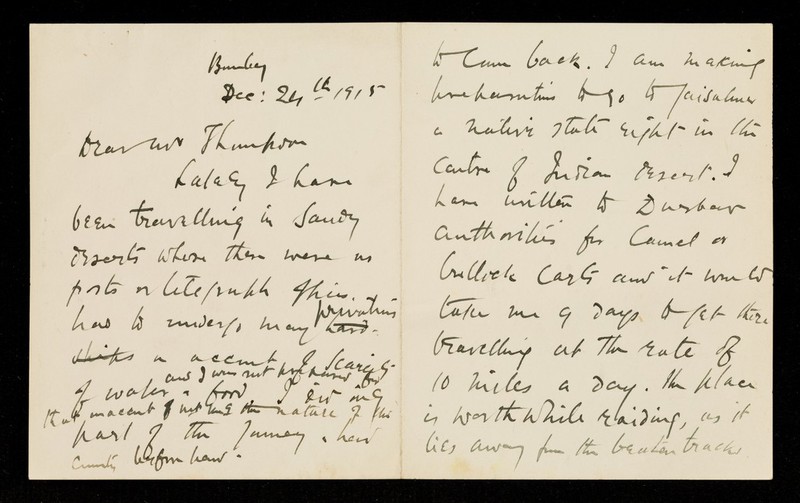 Bombay
Dec: 24th 1915
Dear Mr Thompson
Lately I have
been travelling in Sandy
deserts where there were no
posts or telegraph offices.
had to undergo many privations
hard-
ships on account of scarcity
of water & food and I was not prepared for
that on account of not the nature of this
part of the Journey & had
before hand.
to come back. I am making
preparations to go to Jaisalmer
a native state right in the
centre of Indian desert. I
have written to Durbar
authorities for Camel or
bullock carts and it would
take me 9 days to get there
travelling at the rate of
10 miles a day. The place
is worth while raiding, as it
lies away from the beaten tracks